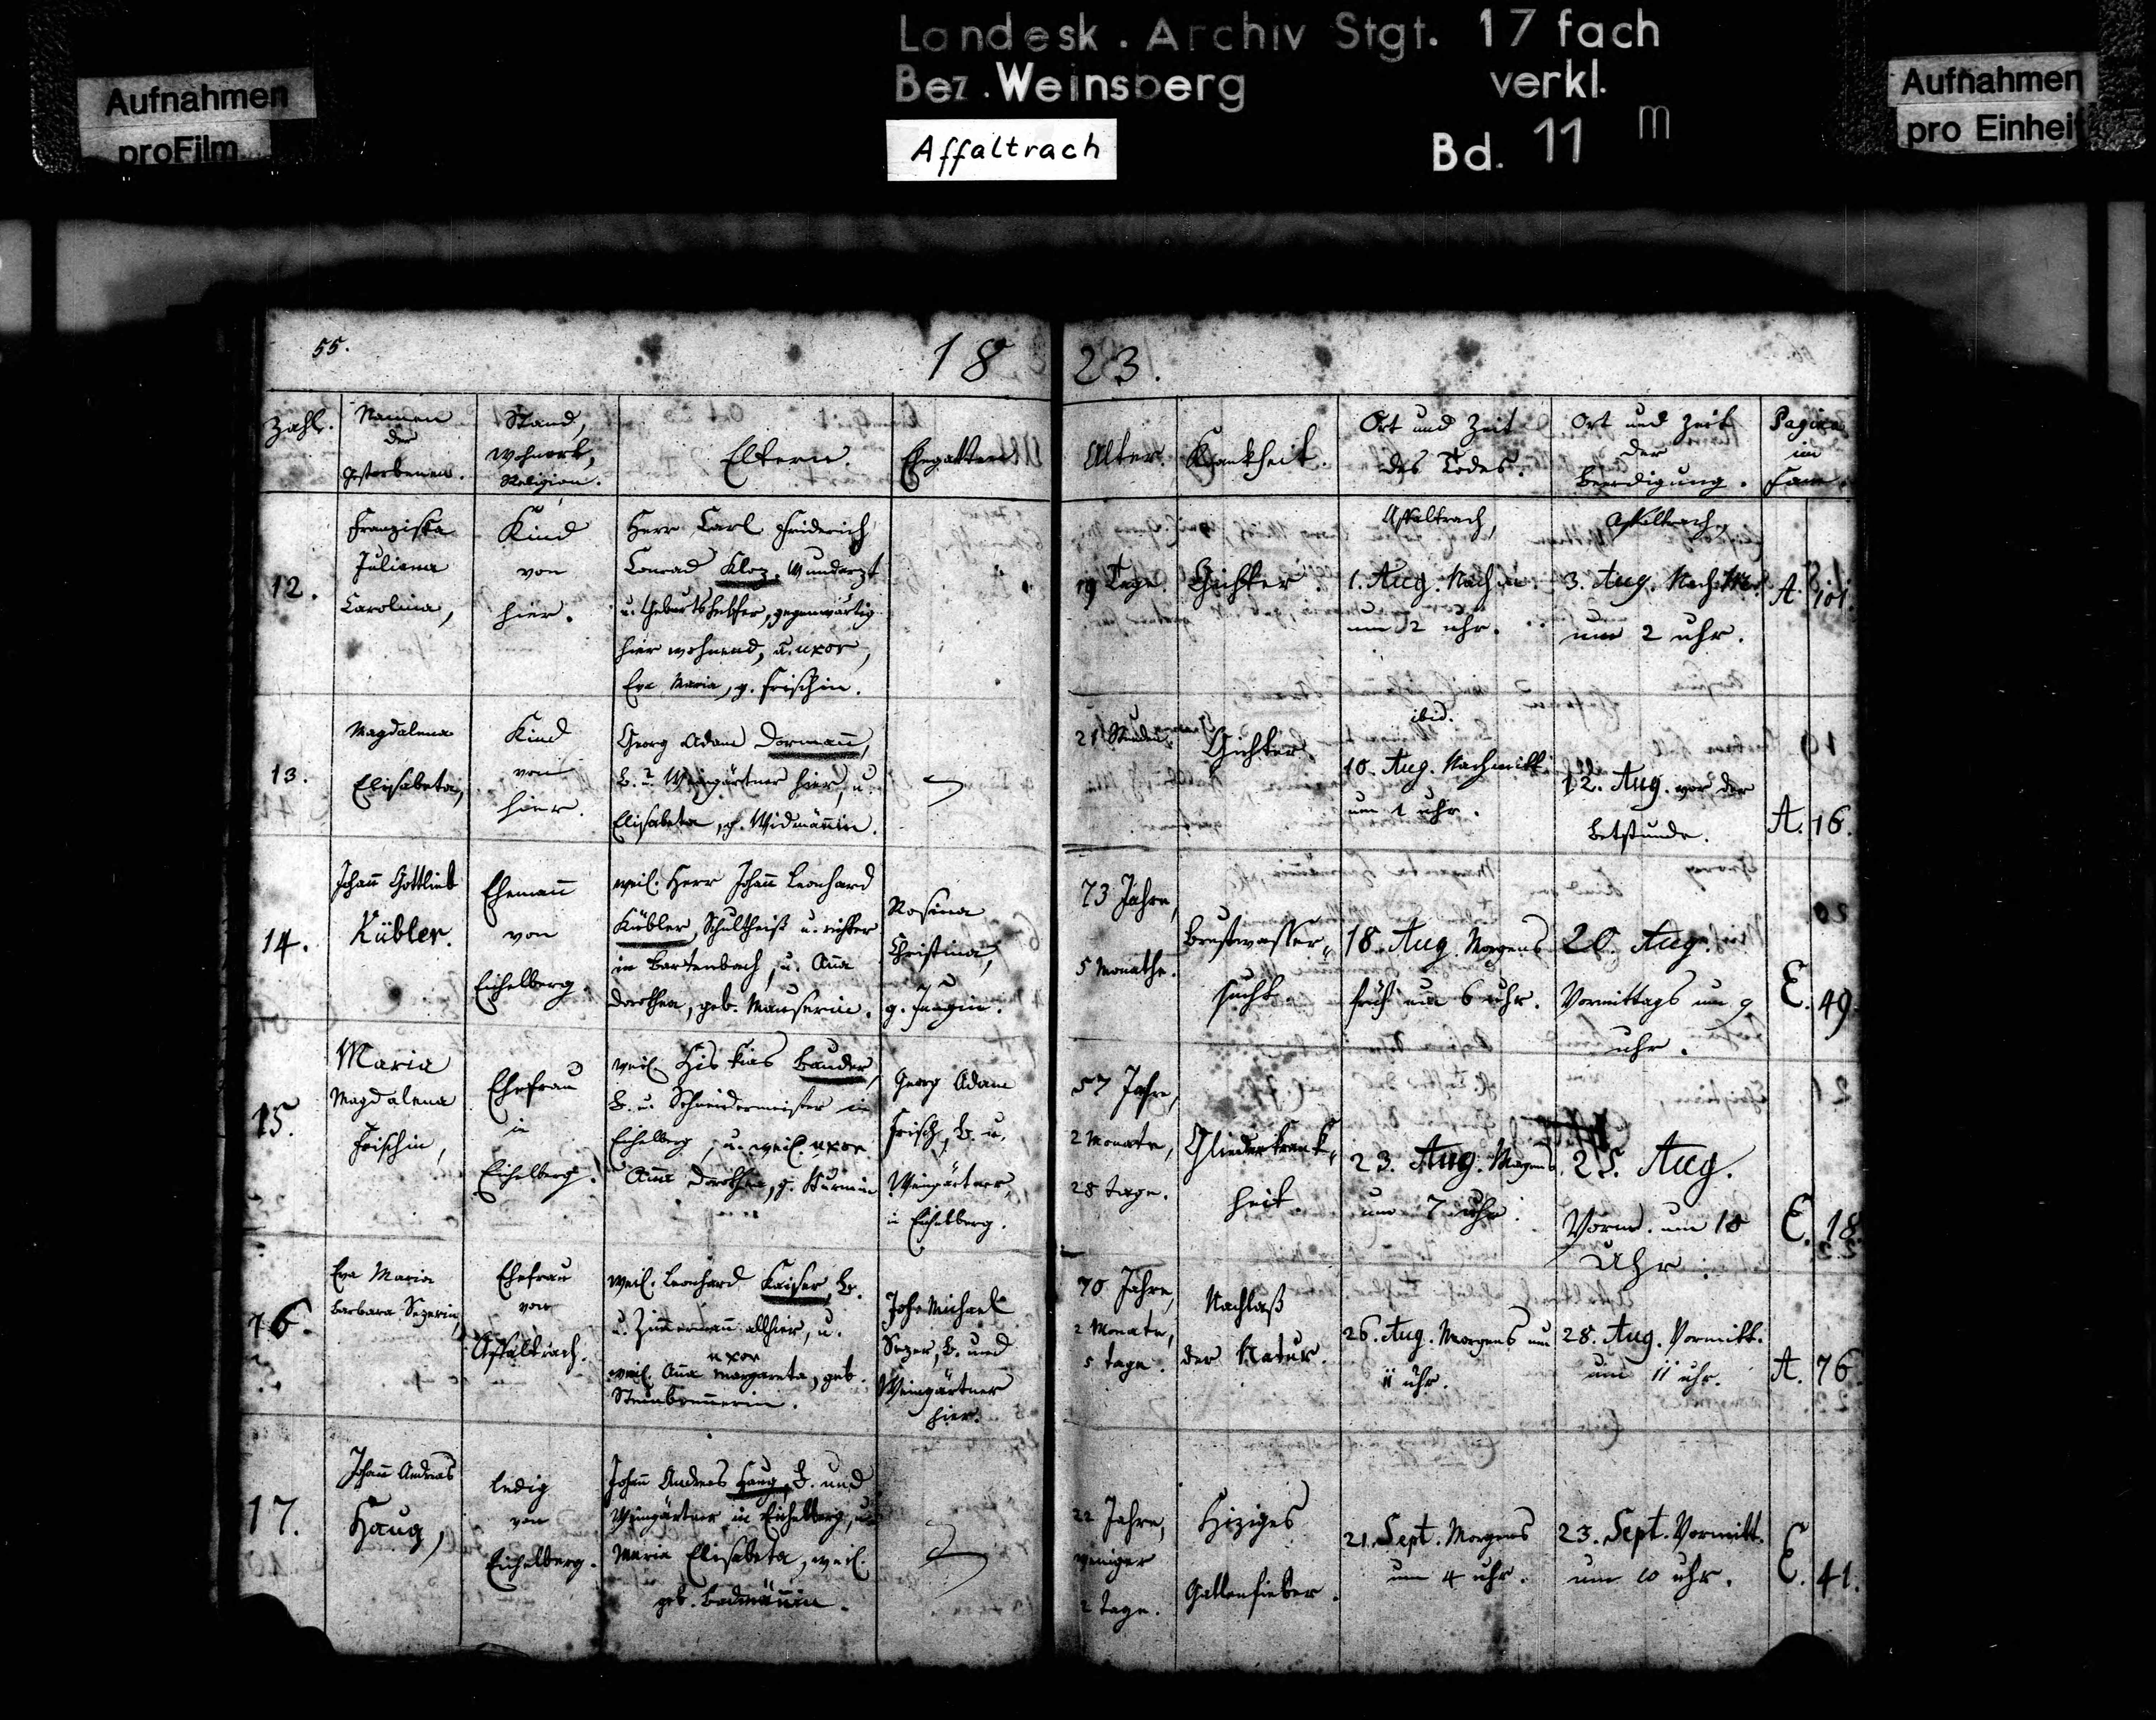 Landesk. Archiv Stgt. 17 fach
Bez. Weinsberg verkl.
Aufnahmen
proFilm
Affaltrach
Bd. 11 m
Aufnahmen
pro Einheit
55.
1823.
Zahl.
Namen
der
Gestorbenen.
Stand,
Wohnort,
Religion.
Eltern.
Ehegatten
Alter.
Krankheit.
Ort und Zeit
des Todes.
Ort und Zeit
der
Beerdigung.
Pagina
im
Fam.
12.
Franziska
Juliana
Carolina,
Kind
von
hier.
Herr Carl Friderich
Conrad Kloz, Wundarzt
u. Geburtshelfer, gegenwärtig
hier wohnend, u. uxor,
Eva Maria, g. Frischin.
19 Tage.
Gichter.
Affaltrach,
1. Aug. Nachm.
um 2 Uhr.
Affaltrach,
3. Aug. Nachm.
um 2 Uhr.
A. 101.
13.
Magdalena
Elisabeta,
Kind
von
hier.
Georg Adam Dormann,
B. u. Weingärtner hier, u.
Elisabeta, g. Widmännin.
21 Stunden.
Gichter.
ibid.
10. Aug. Nachmitt.
um 1 Uhr.
12. Aug. vor der
Betstunde.
A. 16.
14.
Johann Gottlieb
Kübler.
Ehemann
von
Eichelberg.
weil. Herr Johann Leonhard
Kübler, Schultheiß u. Richter
in Bartenbach, u. Anna
Dorothea, geb. Mauserin.
Rosina
Christina,
73 Jahre,
5 Monathe.
Brustwasser-
sucht.
18. Aug. Morgens
früh um 6 Uhr.
20. Aug.
Vormittags um 9
Uhr.
E. 49.
15.
Maria
Magdalena
Frischin,
Ehefrau
in
Eichelberg.
weil. Hiskias Bauder,
B. u. Schneidermeister in
Eichelberg, u. weil. uxor
Anna Dorothea, g.
Georg Adam
Frisch, B. u.
Weingärtner,
in Eichelberg.
57 Jahre,
2 Monate,
28 Tage.
Gliederkrank-
heit.
23. Aug. Morgens
um 7 Uhr.
25. Aug.
Vorm. um 10
Uhr.
E. 18.
16.
Eva Maria
Barbara Sezerin,
Ehefrau
von
Affaltrach.
weil. Leonhard Kaiser, B.
u. Zimmermann allhier, u.
uxor
weil. Anna Margareta, geb.
Steinbrennerin.
Joh. Michael
Sezer, B. und
Weingärtner
hier.
70 Jahre,
2 Monate,
5 Tage.
Nachlaß
der Natur.
26. Aug. Morgens um
11 Uhr.
28. Aug. Vormitt.
um 11 Uhr.
A. 76.
17.
Johann Andreas
Haug,
ledig
von
Eichelberg.
Johann Andreas Haug, B. und
Weingärtner in Eichelberg, u.
Maria Elisabeta, weil.
geb.
22 Jahre,
weniger
2 Tage.
Hiziges
Gallenfieber.
21. Sept. Morgens
um 4 Uhr.
23. Sept. Vormitt.
um 10 Uhr.
E. 41.